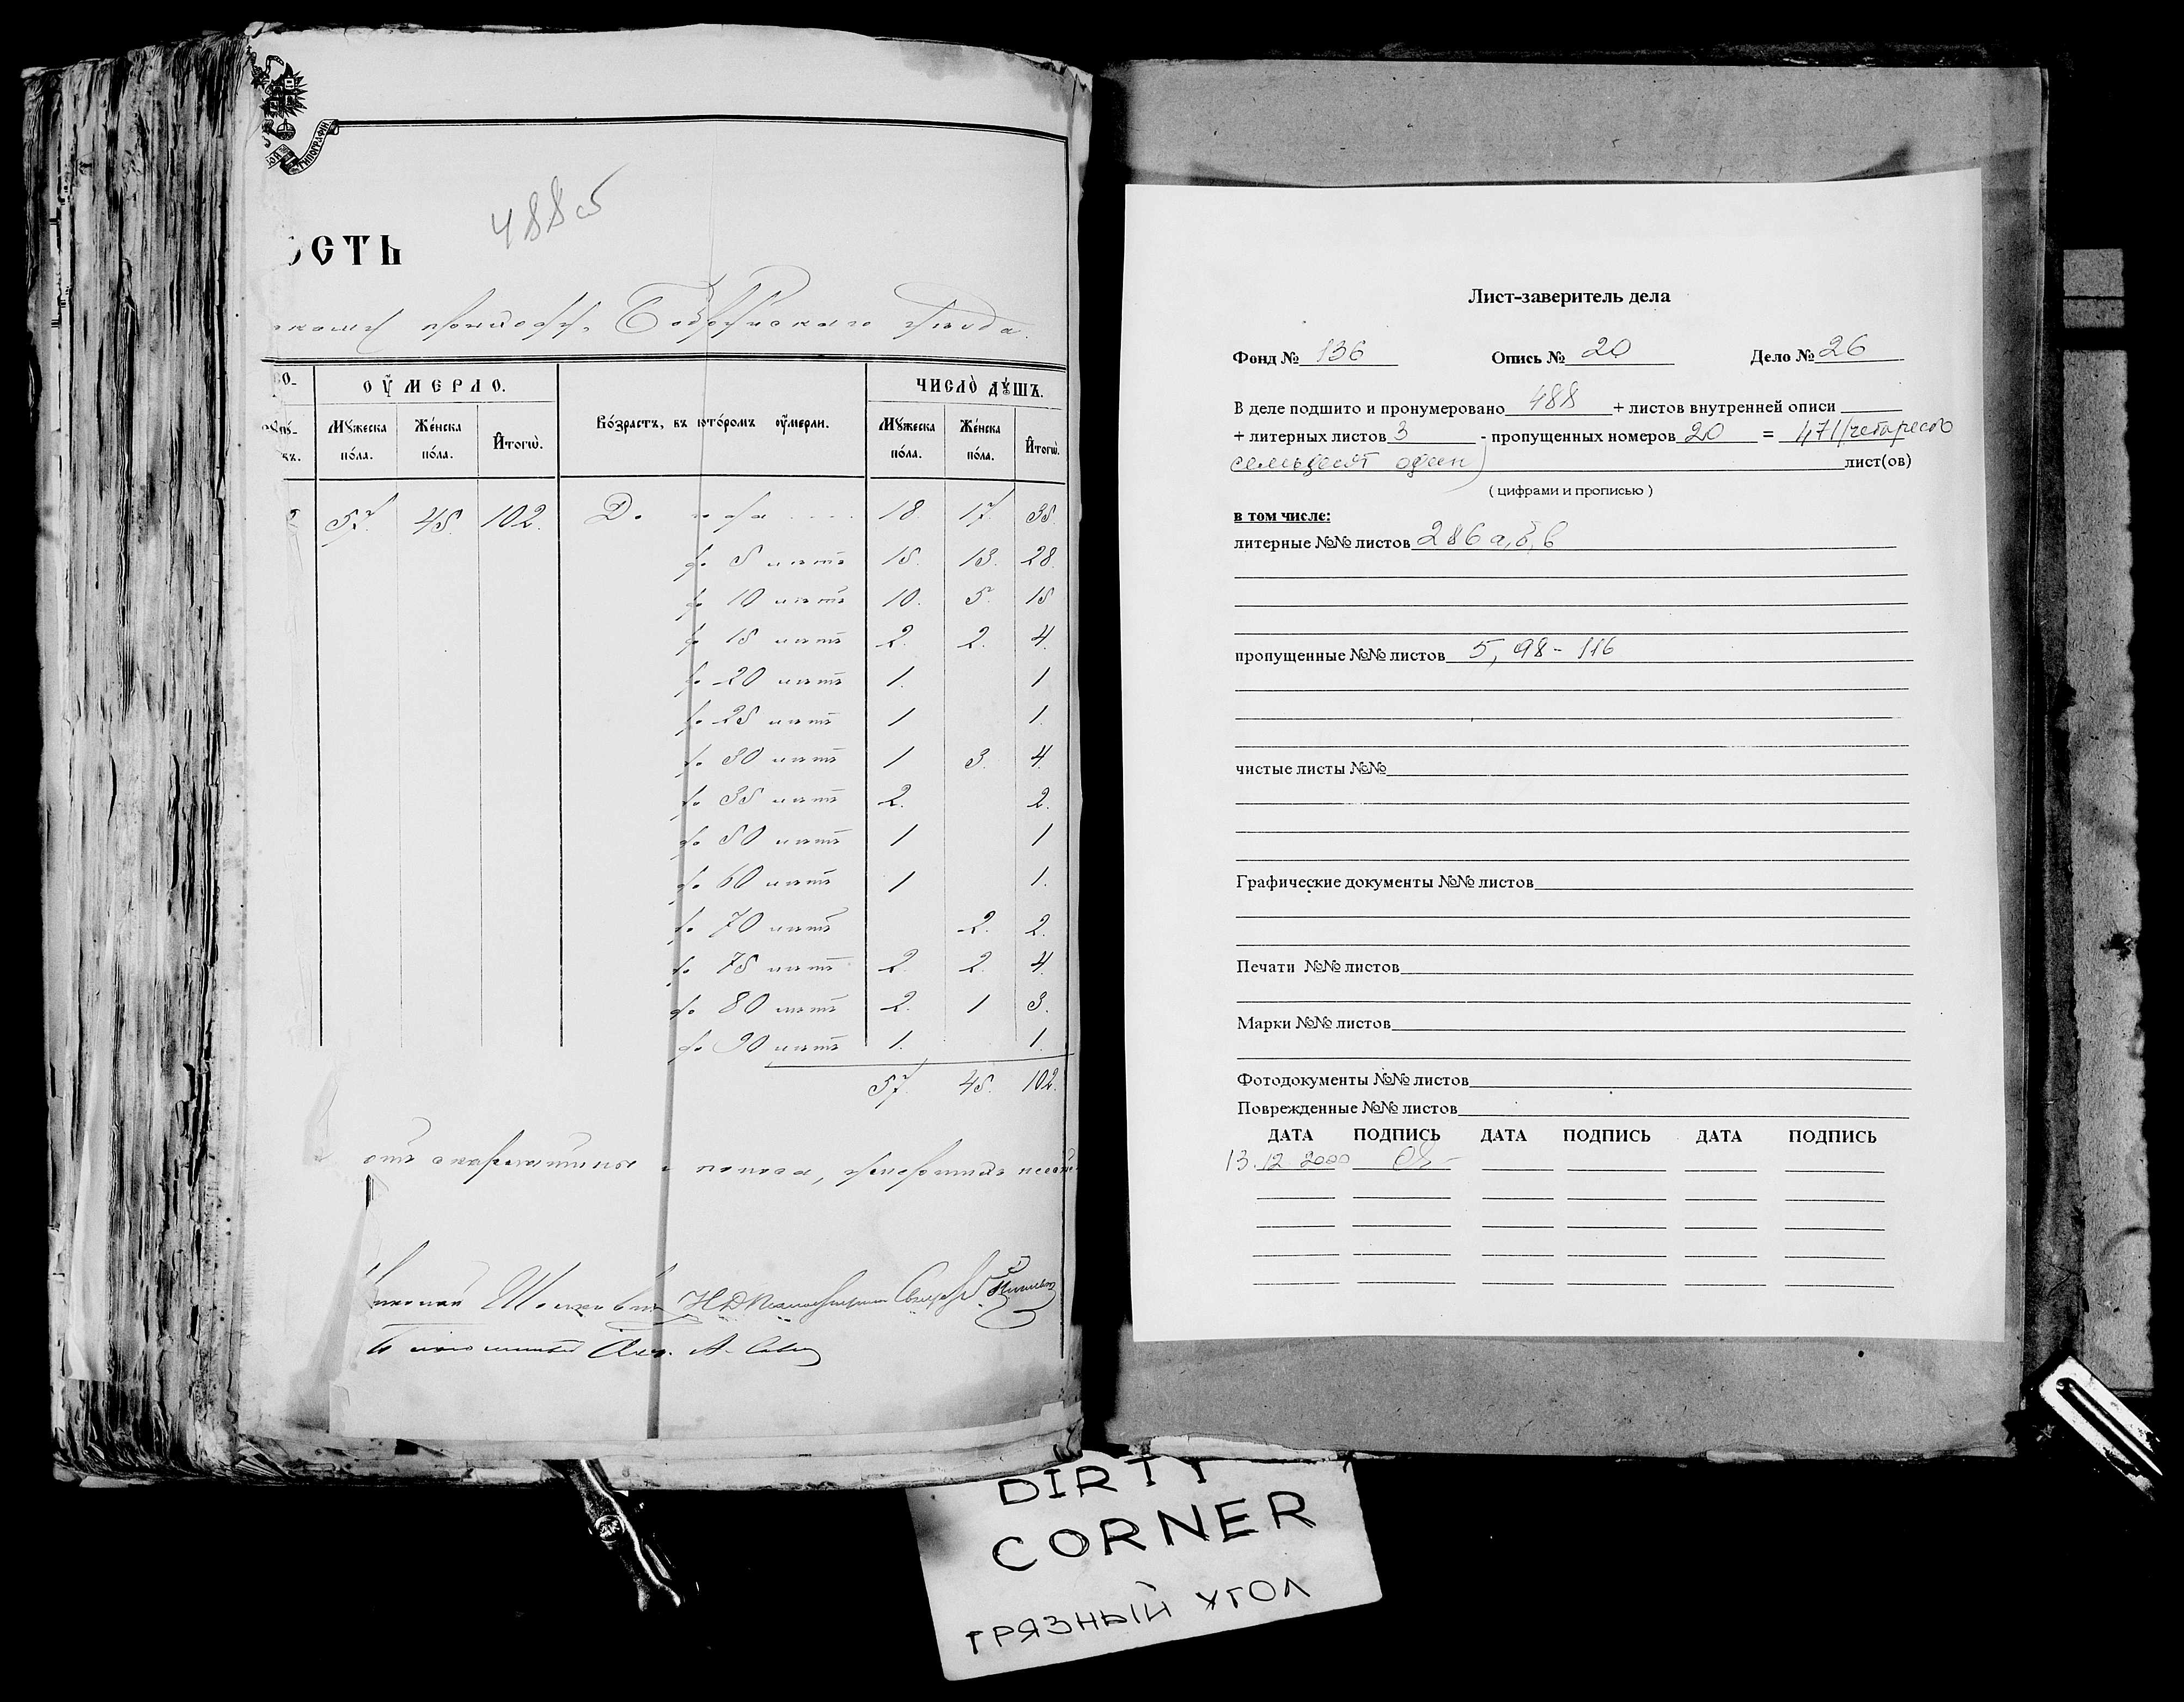 ТИПОГРАФІИ
488об
ОСТЬ
Бобруйскаго уѣзда.
ОУМЕРЛО.
ЧИСЛО ДУШЪ.
Мужеска пола.
Женска пола.
Итогѡ.
Возрастъ, въ которомъ оумерли.
Мужеска пола.
Женска пола.
Итогѡ.
57. 45. 102. До года 18 17 35
до 5 лѣтъ 15. 13. 28.
до 10 лѣтъ 10. 5 15
до 15 лѣтъ 2. 2. 4.
до 20 лѣтъ 1. 1
до 25 лѣтъ 1 1.
до 30 лѣтъ 1 3. 4.
до 35 лѣтъ 2. 2.
до 50 лѣтъ 1 1
до 60 лѣтъ 1 1.
до 70 лѣтъ 2. 2.
до 75 лѣтъ 2. 2. 4.
до 80 лѣтъ 2. 1 3.
до 90 лѣтъ 1. 1.
57. 45. 102.
отъ скарлатины и поноса,
Лист-заверитель дела
Фонд № 136 Опись № 20 Дело № 26
В деле подшито и пронумеровано 488 + листов внутренней описи
+ литерных листов 3 - пропущенных номеров 20 = 471 (четыреста
семьдесят один) лист(ов)
( цифрами и прописью )
в том числе:
литерные №№ листов 286 а, б, в
пропущенные №№ листов 5, 98 - 116
чистые листы №№
Графические документы №№ листов
Печати №№ листов
Марки №№ листов
Фотодокументы №№ листов
Поврежденные №№ листов
ДАТА ПОДПИСЬ ДАТА ПОДПИСЬ ДАТА ПОДПИСЬ
13.12.2000
DIRTY
CORNER
ГРЯЗНЫЙ УГОЛ